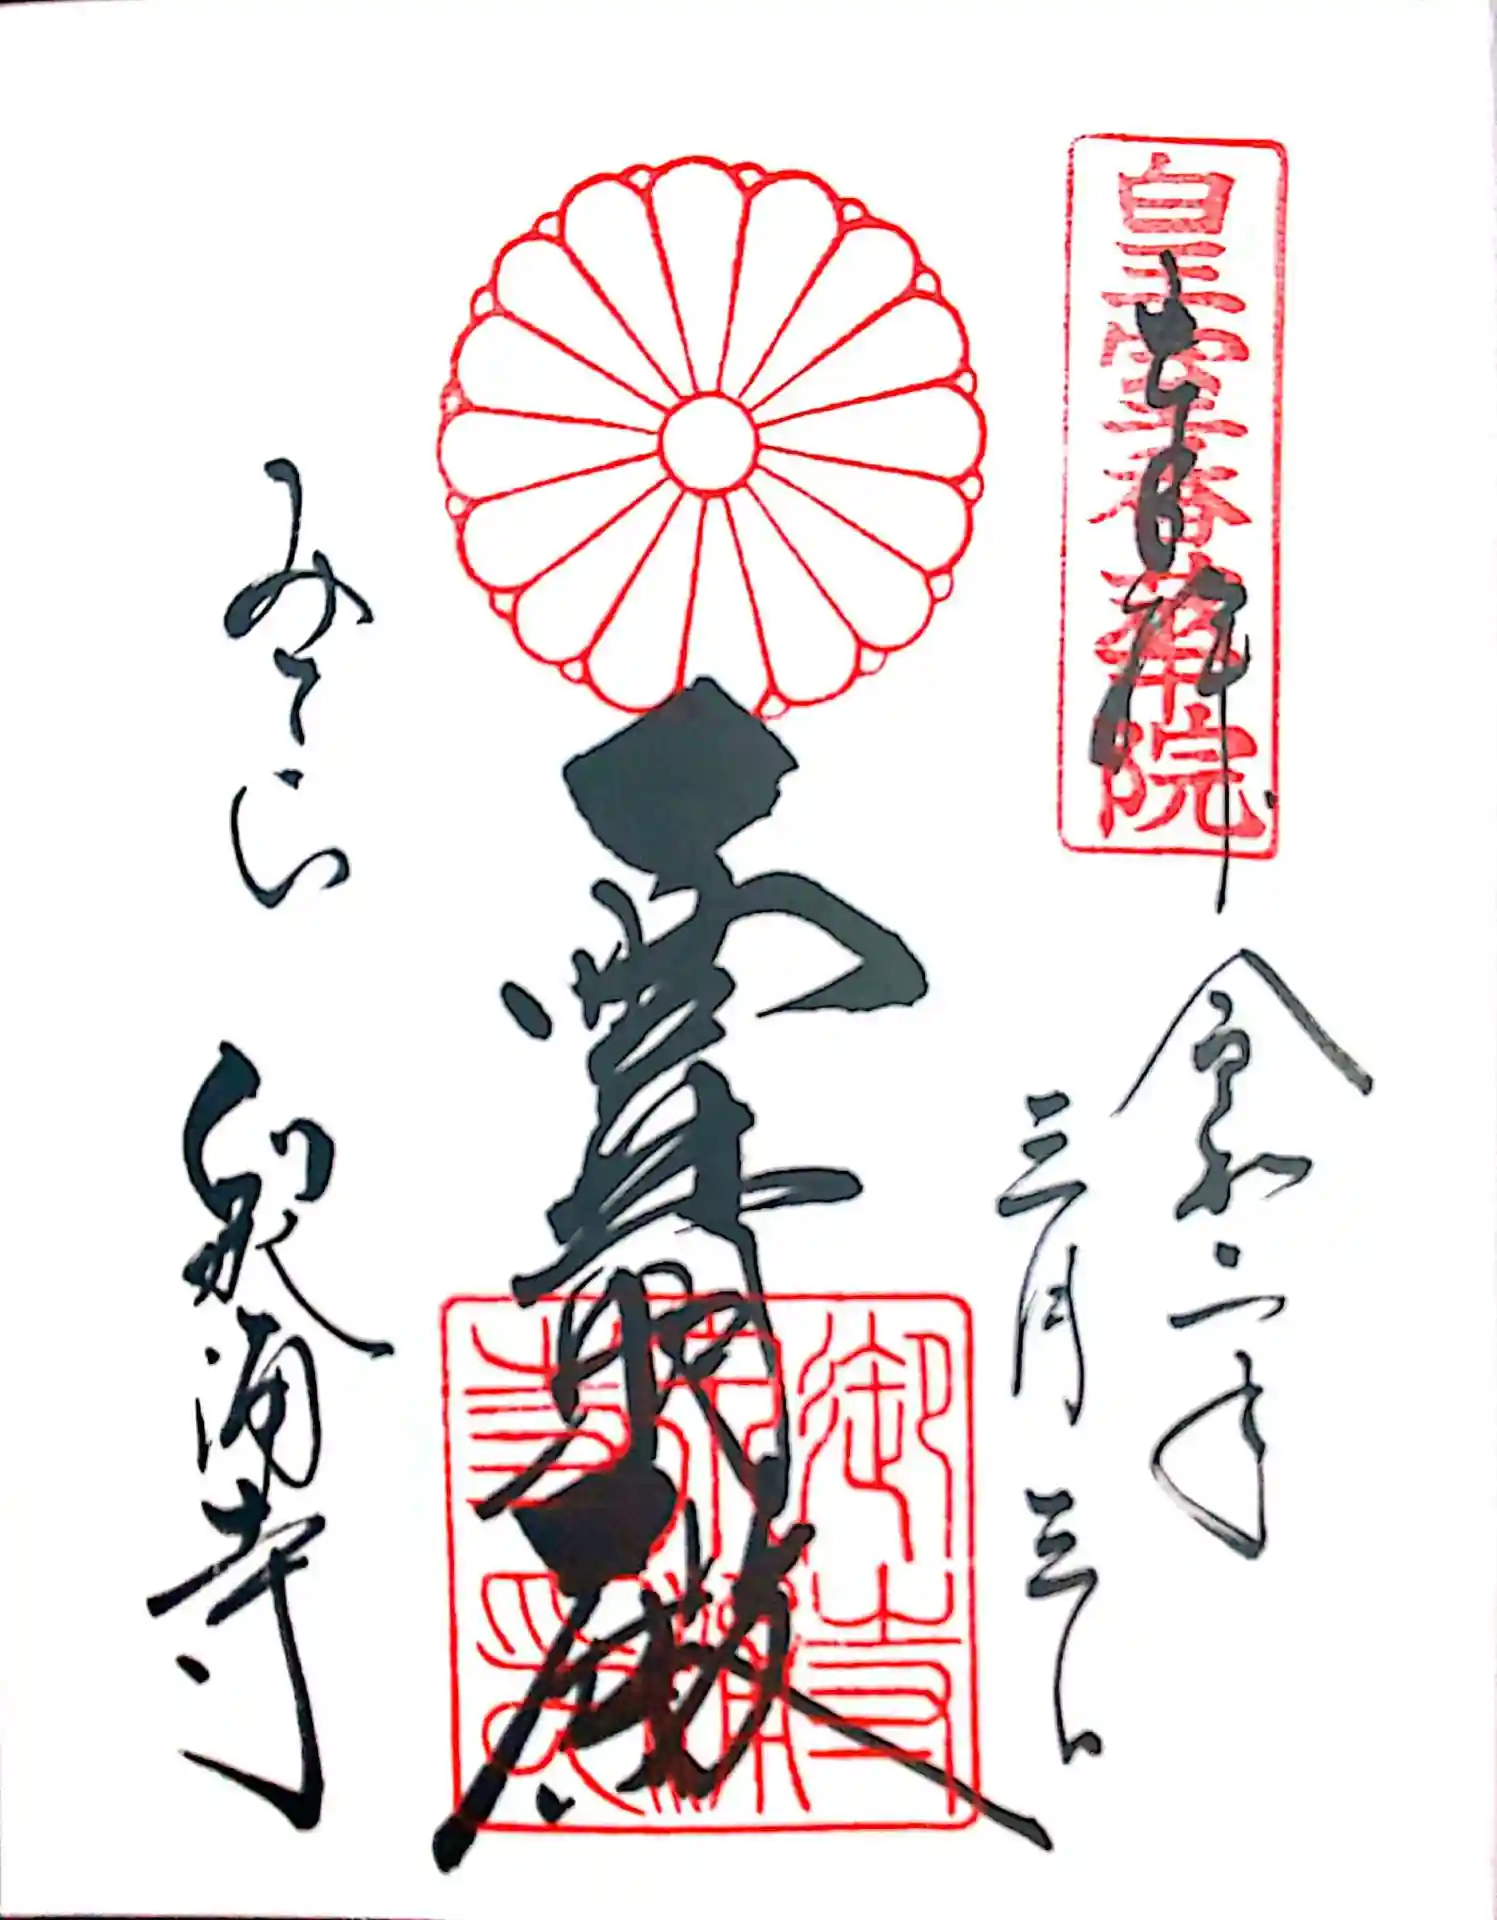 皇室香華院
奉拝
令和二年
三月三日
霊明殿
みてら 泉涌寺